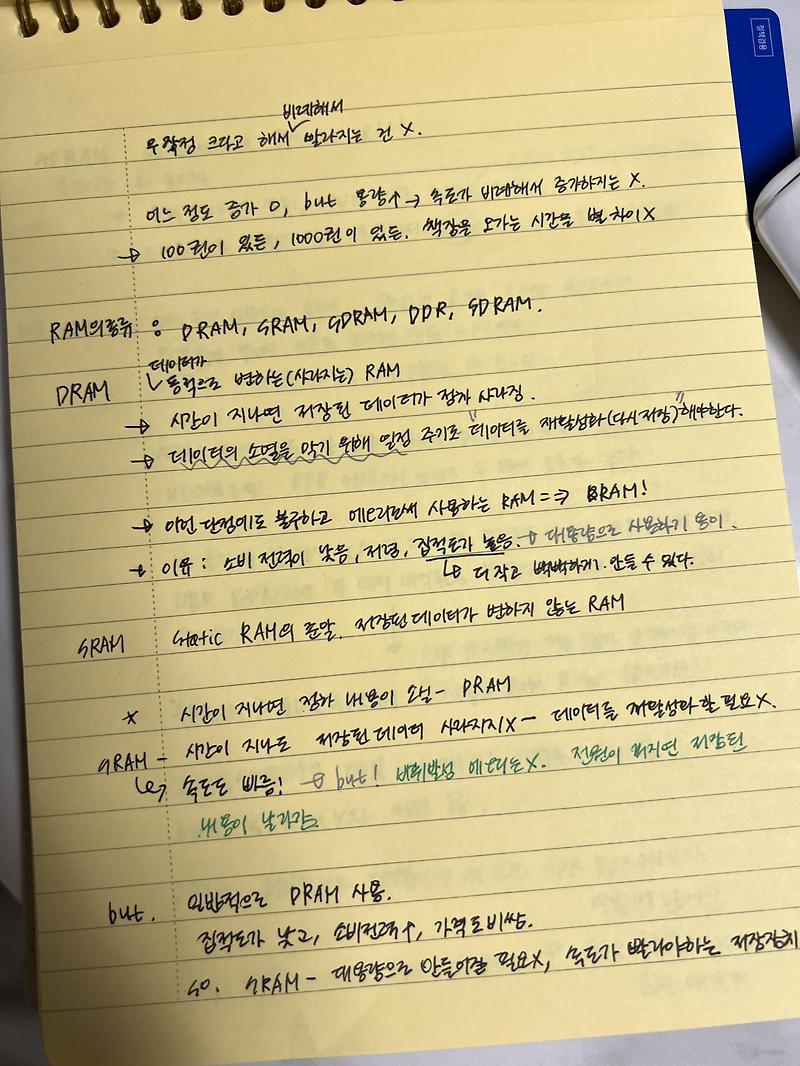 정책검증
비례해서
무작정 크다고 해서 ✓ 빨라지는 건 X.
어느 정도 증가 O, but 용량↑ → 속도가 비례해서 증가하지는 X.
→ 100권이 있든, 1000권이 있든. 책장을 오가는 시간은 별 차이 X
RAM의 종류 : DRAM, SRAM, SDRAM, DDR, SDRAM.
데이터가
DRAM ↳ 동적으로 변하는(사라지는) RAM
→ 시간이 지나면 저장된 데이터가 점차 사라짐.
→ 데이터의 소멸을 막기 위해 일정 주기로 "데이터를 재활성화(다시 저장)"해야한다.
→ 이런 단점에도 불구하고 메모리로써 사용하는 RAM => DRAM!
→ 이유 : 소비 전력이 낮음, 저렴, 집적도가 높음. → 대용량으로 사용하기 용이.
↳ 더 작고 빽빽하게 만들 수 있다.
SRAM Static RAM의 준말. 저장된 데이터가 변하지 않는 RAM
* 시간이 지나면 점차 내용이 소실 - DRAM
SRAM - 시간이 지나도 저장된 데이터 사라지지X - 데이터를 재활성화 할 필요X.
↳ 속도도 빠름! → but! 비휘발성 메모리는X. 전원이 꺼지면 저장된
내용이 날라감.
but. 일반적으로 DRAM 사용.
집적도가 낮고, 소비전력↑, 가격도 비쌈.
so. SRAM - 대용량으로 만들어질 필요X, 속도가 빨라야하는 저장장치